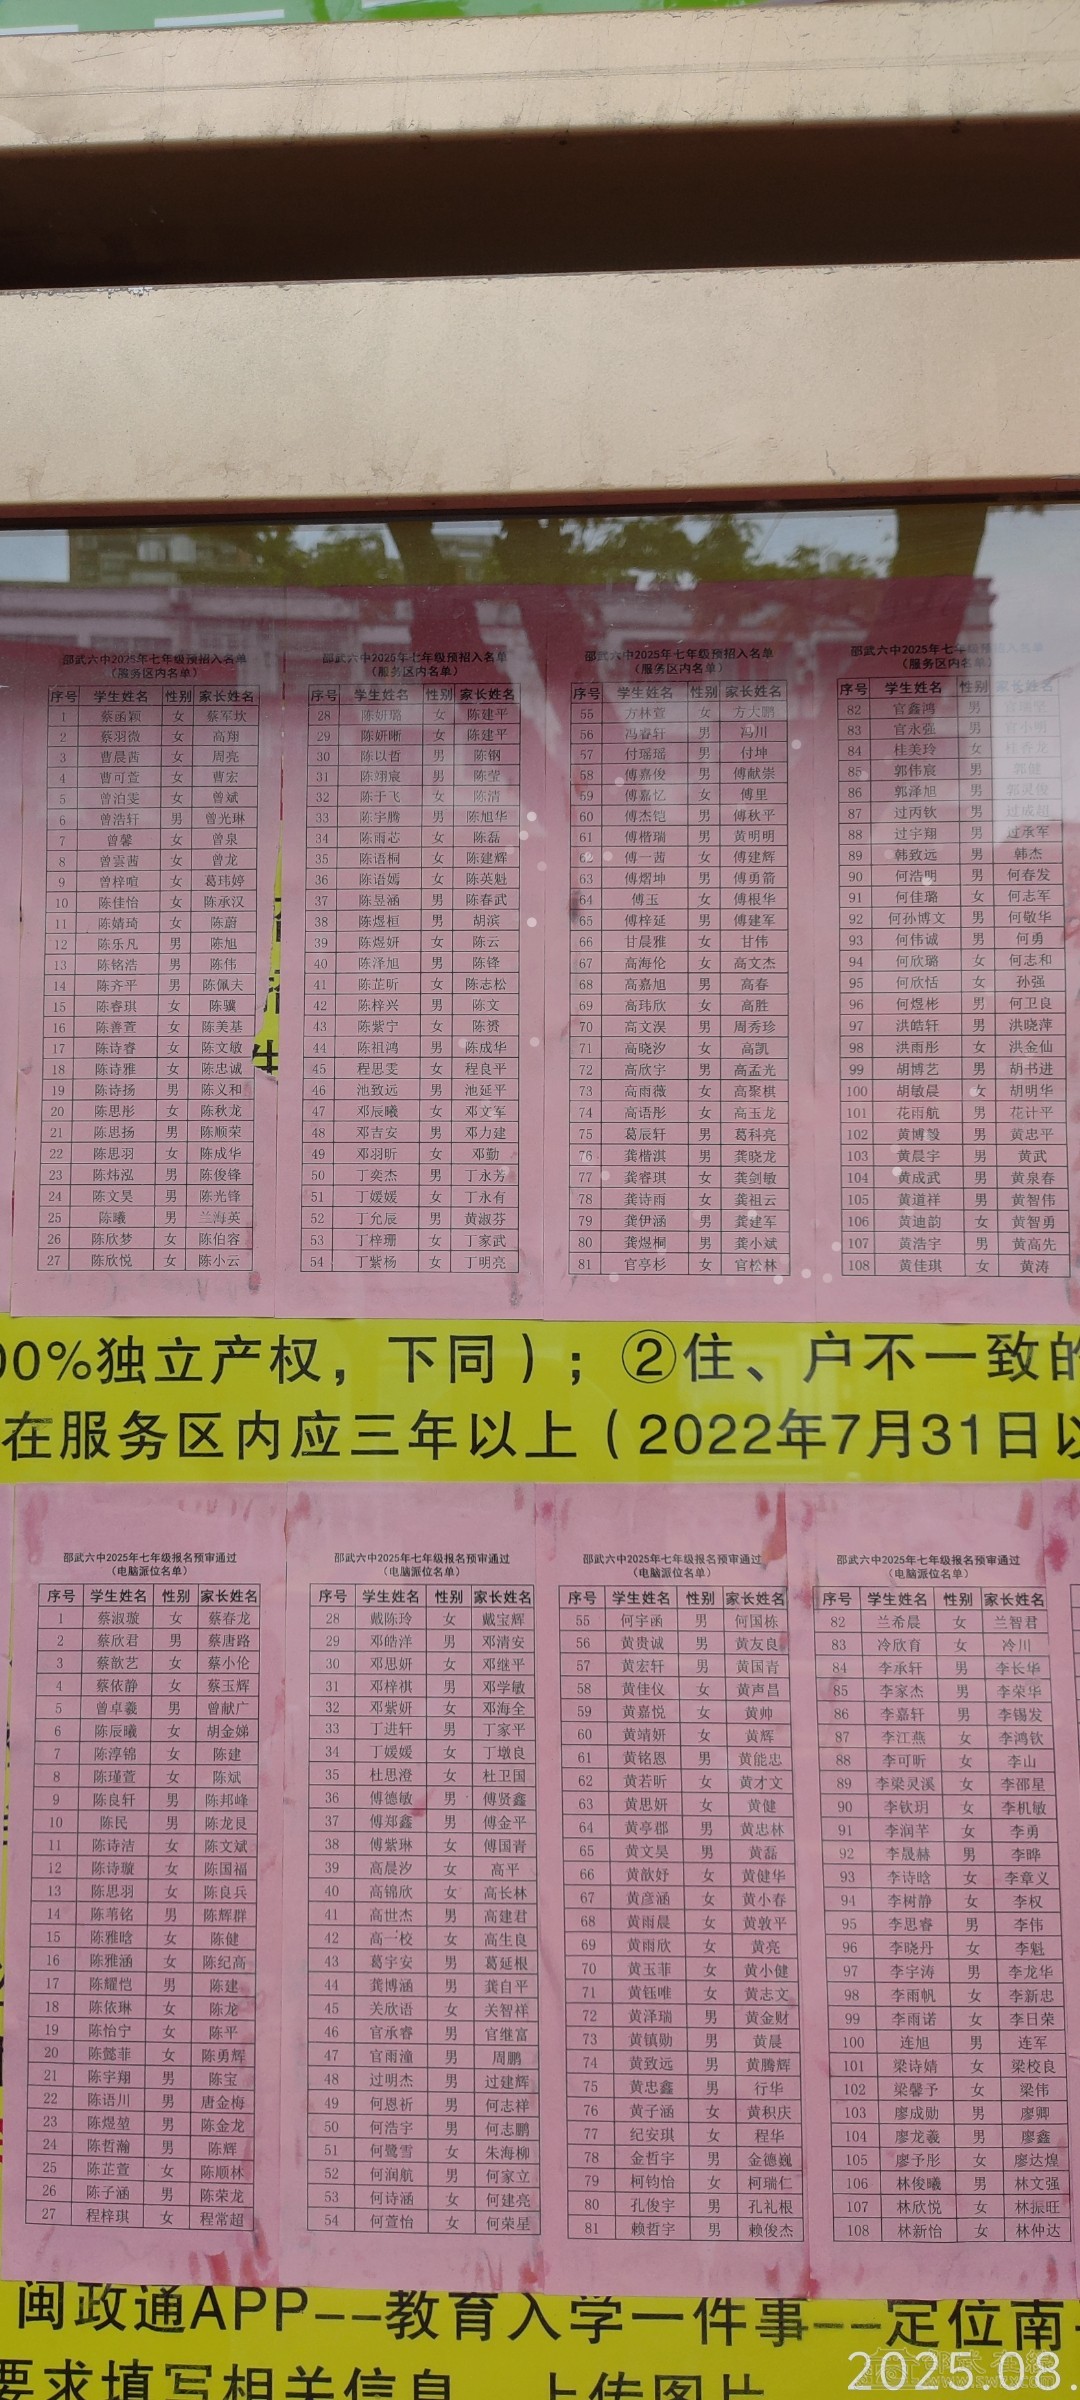 邵武六中2025年七年级预招入名单
（服务区内名单）
序号 学生姓名 性别 家长姓名
1 蔡函颖 女 蔡军坎
2 蔡羽微 女 高翔
3 曹晨茜 女 周亮
4 曹可萱 女 曹宏
5 曾泊雯 女 曾斌
6 曾浩轩 男 曾光琳
7 曾馨 女 曾泉
8 曾雲茜 女 曾龙
9 曾梓喧 女 葛玮婷
10 陈佳怡 女 陈承汉
11 陈婧琦 女 陈蔚
12 陈乐凡 男 陈旭
13 陈铭浩 男 陈伟
14 陈齐平 男 陈佩夫
15 陈睿琪 女 陈骥
16 陈善萱 女 陈美基
17 陈诗睿 女 陈文敏
18 陈诗雅 女 陈忠诚
19 陈诗扬 男 陈义和
20 陈思彤 女 陈秋龙
21 陈思扬 男 陈顺荣
22 陈思羽 女 陈成华
23 陈炜泓 男 陈俊锋
24 陈文昊 男 陈光锋
25 陈曦 男 兰海英
26 陈欣梦 女 陈伯容
27 陈欣悦 女 陈小云
邵武六中2025年七年级预招入名单
（服务区内名单）
序号 学生姓名 性别 家长姓名
28 陈妍璐 女 陈建平
29 陈妍晰 女 陈建平
30 陈以哲 男 陈钢
31 陈翊宸 男 陈莹
32 陈于飞 女 陈清
33 陈宇腾 男 陈旭华
34 陈雨芯 女 陈磊
35 陈语桐 女 陈建辉
36 陈语嫣 女 陈英魁
37 陈昱涵 男 陈春武
38 陈煜桓 男 胡滨
39 陈煜妍 女 陈云
40 陈泽旭 男 陈锋
41 陈芷昕 女 陈志松
42 陈梓兴 男 陈文
43 陈紫宁 女 陈赟
44 陈祖鸿 男 陈成华
45 程思雯 女 程良平
46 池致远 男 池延平
47 邓辰曦 女 邓文军
48 邓吉安 男 邓力建
49 邓羽昕 女 邓勤
50 丁奕杰 男 丁永芳
51 丁媛媛 女 丁永有
52 丁允辰 男 黄淑芬
53 丁梓珊 女 丁家武
54 丁紫杨 女 丁明亮
邵武六中2025年七年级预招入名单
（服务区内名单）
序号 学生姓名 性别 家长姓名
55 方林萱 女 方大鹏
56 冯睿轩 男 冯川
57 付瑶瑶 男 付坤
58 傅嘉俊 男 傅献崇
59 傅嘉忆 女 傅里
60 傅杰铠 男 傅秋平
61 傅楷瑞 男 黄明明
62 傅一茜 女 傅建辉
63 傅熠坤 男 傅勇箭
64 傅玉 女 傅根华
65 傅梓延 男 傅建军
66 甘晨雅 女 甘伟
67 高海伦 女 高文杰
68 高嘉旭 男 高春
69 高玮欣 女 高胜
70 高文淏 男 周秀珍
71 高晓汐 女 高凯
72 高欣宇 男 高孟光
73 高雨薇 女 高聚棋
74 高语彤 女 高玉龙
75 葛辰轩 男 葛科亮
76 龚楷淇 男 龚晓龙
77 龚睿琪 女 龚剑敏
78 龚诗雨 女 龚祖云
79 龚伊涵 男 龚建军
80 龚煜桐 男 龚小斌
81 官亭杉 女 官松林
邵武六中2025年七年级预招入名单
（服务区内名单）
序号 学生姓名 性别 家长姓名
82 官鑫鸿 男
83 官永强 男 官小明
84 桂美玲 女 桂香龙
85 郭伟宸 男 郭健
86 郭泽旭 男 郭灵俊
87 过丙钦 男 过成超
88 过宇翔 男 过承军
89 韩致远 男 韩杰
90 何浩明 男 何春发
91 何佳璐 女 何志军
92 何孙博文 男 何敬华
93 何伟诚 男 何勇
94 何欣璐 女 何志和
95 何欣恬 女 孙强
96 何煜彬 男 何卫良
97 洪皓轩 男 洪晓萍
98 洪雨彤 女 洪金仙
99 胡博艺 男 胡书进
100 胡敏晨 女 胡明华
101 花雨航 男 花计平
102 黄博毅 男 黄忠平
103 黄晨宇 男 黄武
104 黄成武 男 黄泉春
105 黄道祥 男 黄智伟
106 黄迪韵 女 黄智勇
107 黄浩宇 男 黄高先
108 黄佳琪 女 黄涛
00%独立产权，下同）；②住、户不一致的
在服务区内应三年以上（2022年7月31日以
邵武六中2025年七年级报名预审通过
（电脑派位名单）
序号 学生姓名 性别 家长姓名
1 蔡淑璇 女 蔡春龙
2 蔡欣君 男 蔡唐路
3 蔡歆艺 女 蔡小伦
4 蔡依静 女 蔡玉辉
5 曾卓羲 男 曾献广
6 陈辰曦 女 胡金娣
7 陈淳锦 女 陈建
8 陈瑾萱 女 陈斌
9 陈良轩 男 陈邦峰
10 陈民 男 陈龙良
11 陈诗洁 女 陈文斌
12 陈诗璇 女 陈国福
13 陈思羽 女 陈良兵
14 陈苇铭 男 陈辉群
15 陈雅晗 女 陈健
16 陈雅涵 女 陈纪高
17 陈耀恺 男 陈建
18 陈依琳 女 陈龙
19 陈怡宁 女 陈平
20 陈懿菲 女 陈勇辉
21 陈宇翔 男 陈宝
22 陈语川 男 唐金梅
23 陈煜堃 男 陈金龙
24 陈哲瀚 男 陈辉
25 陈芷萱 女 陈顺林
26 陈子涵 男 陈荣龙
27 程梓琪 女 程常超
邵武六中2025年七年级报名预审通过
（电脑派位名单）
序号 学生姓名 性别 家长姓名
28 戴陈玲 女 戴宝辉
29 邓皓洋 男 邓清安
30 邓思妍 女 邓继平
31 邓梓祺 男 邓学敏
32 邓紫妍 女 邓海全
33 丁进轩 男 丁家平
34 丁媛媛 女 丁墩良
35 杜思澄 女 杜卫国
36 傅德敏 男 傅贤鑫
37 傅郑鑫 男 傅金平
38 傅紫琳 女 傅国青
39 高晨汐 女 高平
40 高锦欣 女 高长林
41 高世杰 男 高建君
42 高一校 女 高生良
43 葛宇安 男 葛延根
44 龚博涵 男 龚自平
45 关欣语 女 关智祥
46 官承睿 男 官继富
47 官雨潼 男 周鹏
48 过明杰 男 过建辉
49 何恩祈 男 何志祥
50 何浩宇 男 何志鹏
51 何鹭雪 女 朱海柳
52 何润航 男 何家立
53 何诗涵 女 何建亮
54 何萱怡 女 何荣星
邵武六中2025年七年级报名预审通过
（电脑派位名单）
序号 学生姓名 性别 家长姓名
55 何宇函 男 何国栋
56 黄贵诚 男 黄友良
57 黄宏轩 男 黄国青
58 黄佳仪 女 黄声昌
59 黄嘉悦 女 黄帅
60 黄靖妍 女 黄辉
61 黄铭恩 男 黄能忠
62 黄若昕 女 黄才文
63 黄思妍 女 黄健
64 黄亭郡 男 黄忠林
65 黄文昊 男 黄磊
66 黄歆妤 女 黄健华
67 黄彦涵 女 黄小春
68 黄雨晨 女 黄敦平
69 黄雨欣 女 黄亮
70 黄玉菲 女 黄小健
71 黄钰唯 女 黄志文
72 黄泽瑞 男 黄金财
73 黄镇勋 男 黄晨
74 黄致远 男 黄腾辉
75 黄忠鑫 男 行华
76 黄子涵 女 黄积庆
77 纪安琪 女 程华
78 金哲宇 男 金德巍
79 柯钧怡 女 柯瑞仁
80 孔俊宇 男 孔礼根
81 赖哲宇 男 赖俊杰
邵武六中2025年七年级报名预审通过
（电脑派位名单）
序号 学生姓名 性别 家长姓名
82 兰希晨 女 兰智君
83 冷欣育 女 冷川
84 李承轩 男 李长华
85 李家杰 男 李荣华
86 李嘉轩 男 李锡发
87 李江燕 女 李鸿钦
88 李可昕 女 李山
89 李梁灵溪 女 李邵星
90 李钦玥 女 李机敏
91 李润芊 女 李勇
92 李晟赫 男 李晔
93 李诗晗 女 李章义
94 李树静 女 李权
95 李思睿 男 李伟
96 李晓丹 女 李魁
97 李宇涛 男 李龙华
98 李雨帆 女 李新忠
99 李雨诺 女 李日荣
100 连旭 男 连军
101 梁诗婧 女 梁校良
102 梁馨予 女 梁伟
103 廖成勋 男 廖卿
104 廖龙羲 男 廖鑫
105 廖予彤 女 廖达煌
106 林俊曦 男 林文强
107 林欣悦 女 林振旺
108 林新怡 女 林仲达
闽政通APP--教育入学一件事--定位南
要求填写相关信息，上传图片
2025.08.